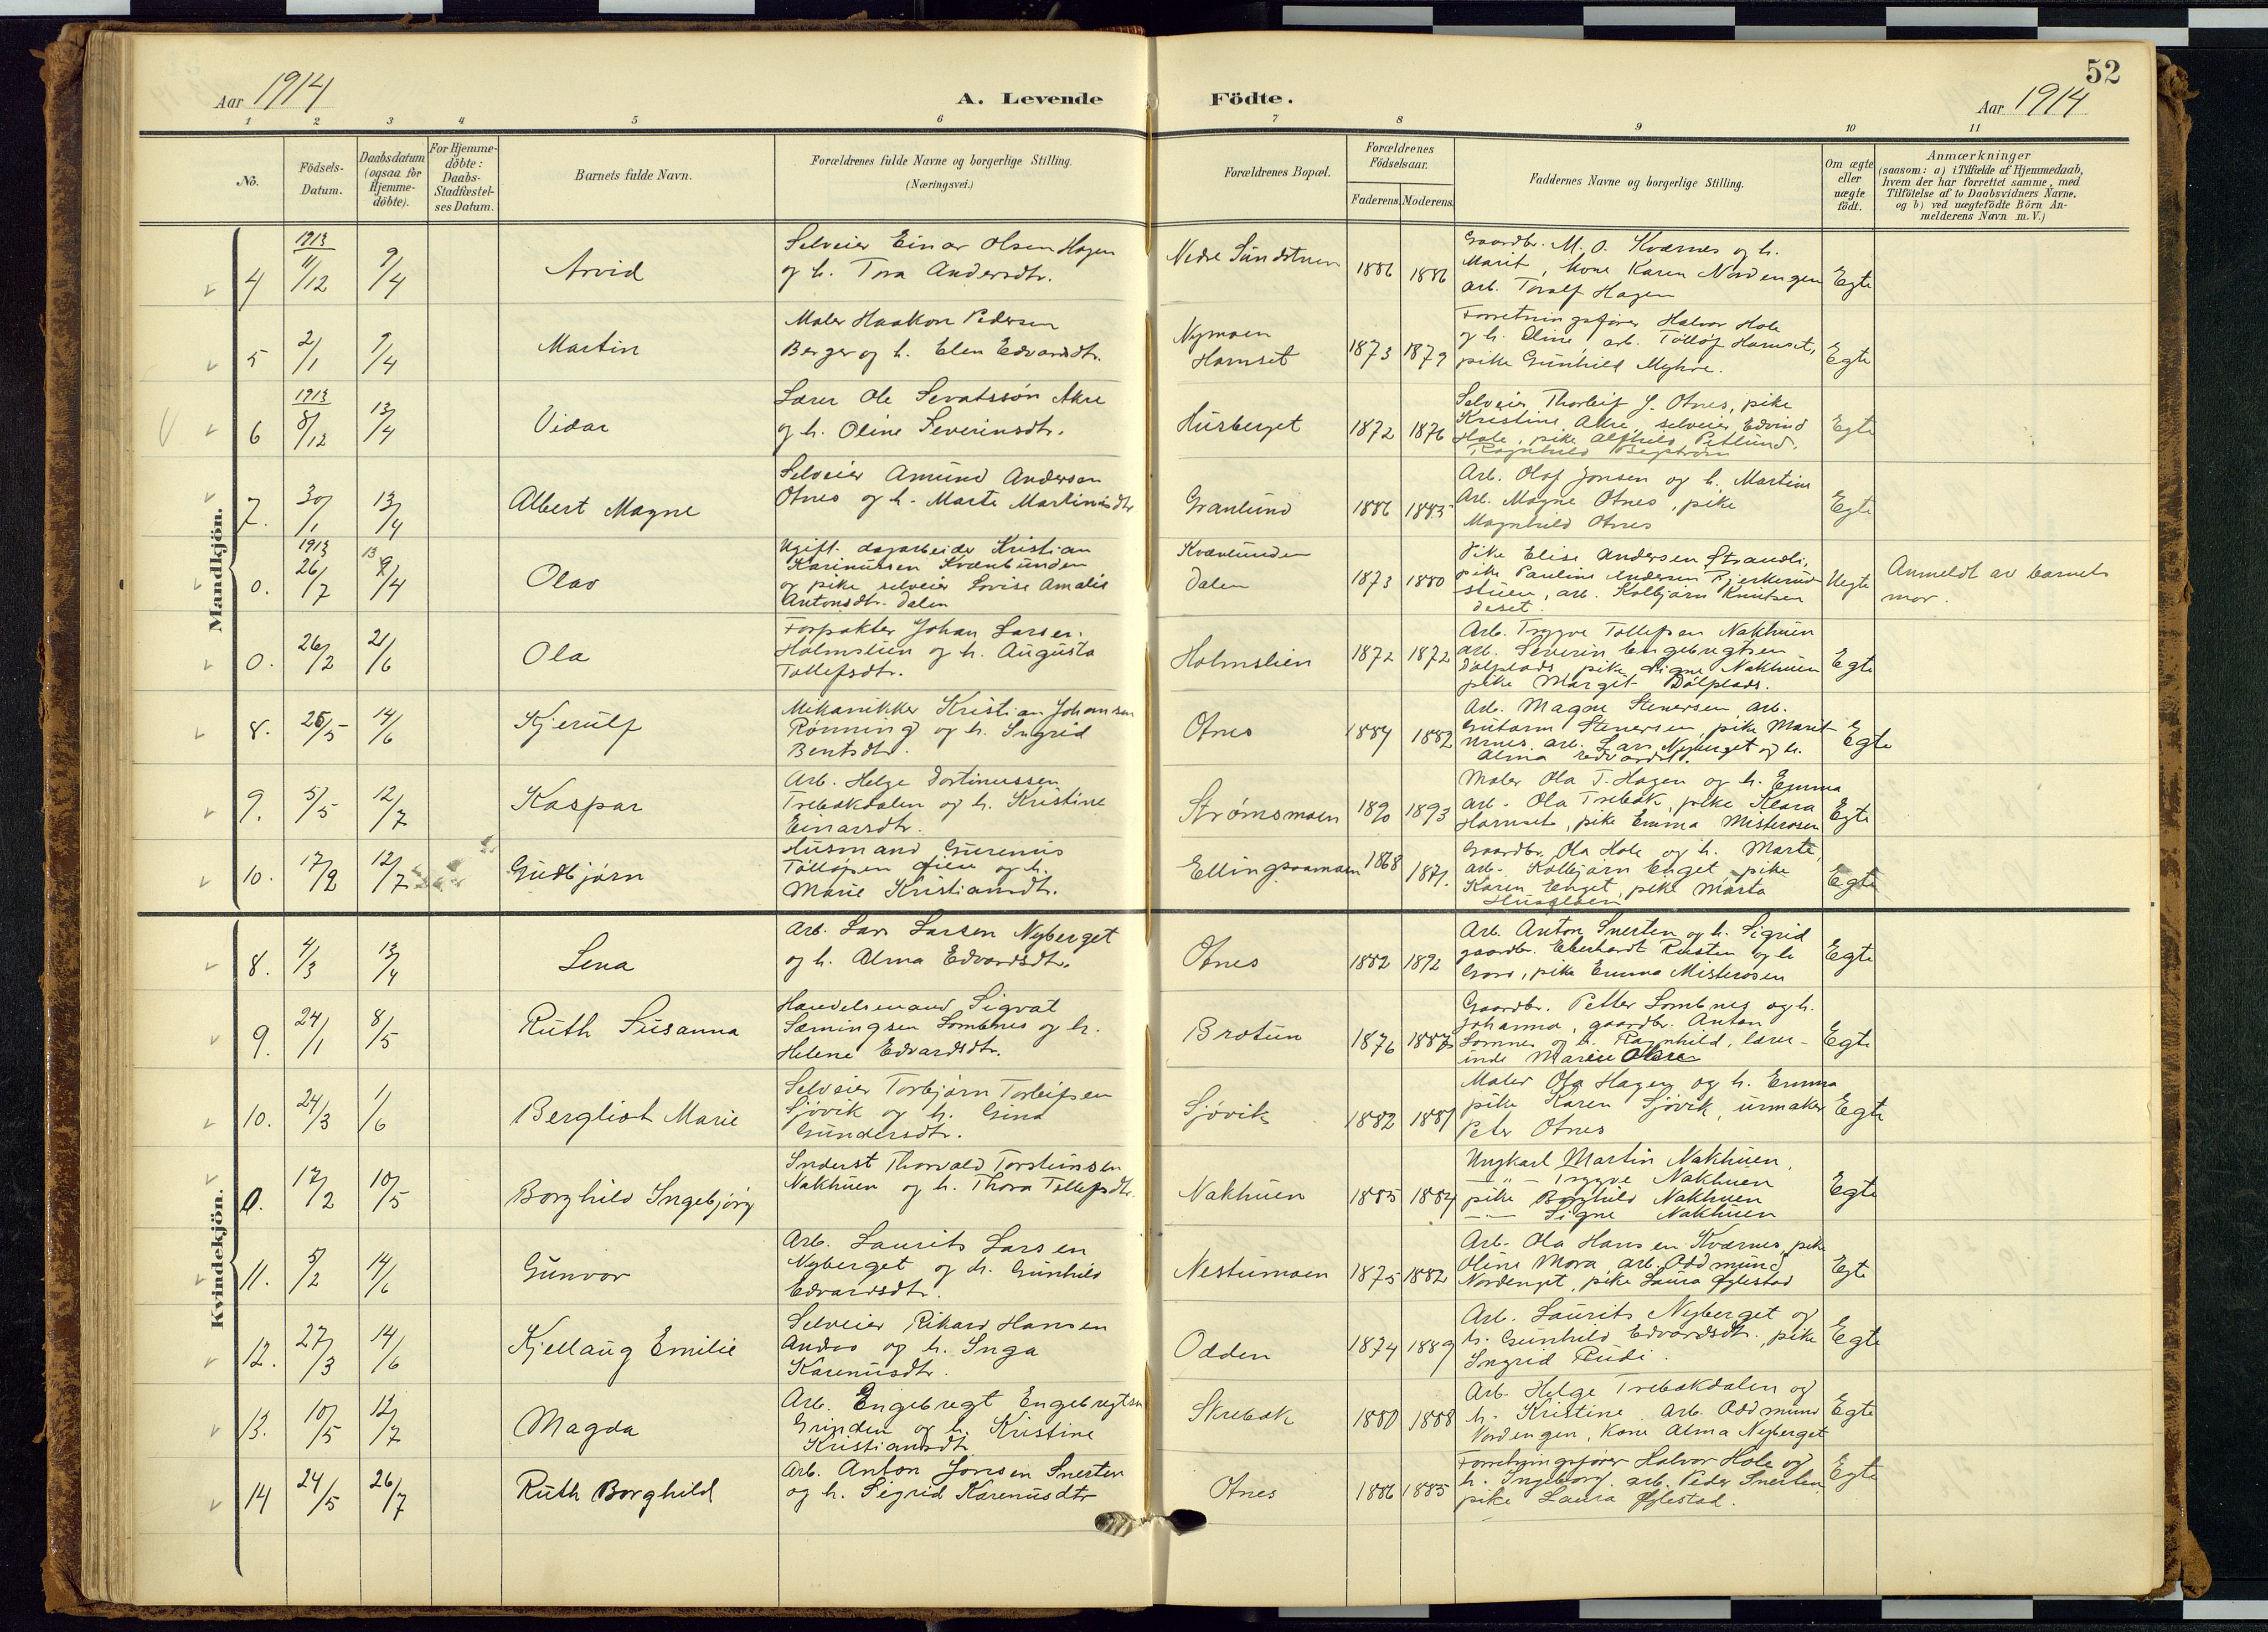 52
Aar 1914
A. Levende Födte.
Aar 1914
1 2 3 4 5 6 7 8 9 10 11
No.
Födsels-Datum.
Daabsdatum (ogsaa for Hjemme-döbte).
For Hjemme-döbte: Daabs-Stadfæstel-ses Datum.
Barnets fulde Navn.
Forældrenes fulde Navne og borgerlige Stilling.
(Næringsvei.)
Forældrenes Bopæl.
Forældrenes Födselsaar.
Faderens. Moderens.
Faddernes Navne og borgerlige Stilling.
Om ægte eller uægte födt.
Anmærkninger
(saasom: a) i Tilfælde af Hjemmedaab,
hvem der har forrettet samme, med
Tilföielse af to Daabsvidners Navne,
og b) ved uægtefödte Börn An-
melderens Navn m. V.)
Mandkjön.
4 1913 11/12 9/4 Arvid
Selveier Einar Olsen Hagen
og h. Tora Andersdtr.
1886 1886
Gaardbr. M. O. Kværnes og h.
Marit, kone Karen Nordengen
arb. Toralf Hagen
Egte
5 2/1 9/4 Martin
Maler Haakon Pedersen
Berger og h. Elen Edvardsdtr.
Nymoen
Harnset
1873 1879
Forretningsfører Halvor Hole
og h. Oline, arb. Tølløf Harnset,
pike Gunhild Myhre.
Egte
6 1913 8/12 13/4 Vidar
Lærer Ole Sivatssøn Akre
og h. Oline Severinsdtr.
Husberget
1872 1876
Selveier Thorleif J. Otnes, pike
Kristine Akre, selveier Edvind
Hole, pike Alfhild Petlund,
Ragnhild
Egte
7. 30/1 13/4 Albert Magne
Selveier Amund Andersen
Otnes og h. Marte Martinusdtr
Granlund
1886 1885
Arb. Olaf Jonsen og h. Martine
Arb. Magne Otnes, pike
Magnhild Otnes
Egte
0. 1913 26/7 13/4 Olav
Ugift dagarbeider Kristian
Karinussen Kvænbunden
og pike selveier Lovise Amalie
Antonsdtr. Dalen
Dalen
1873 1880
Pike Elise Andersen Strandli,
pike Pauline Andersen Bjerkerud
stuen, arb. Kolbjørn Knutsen
Deset.
Uegte
Anmeldt av barnets
mor.
0. 26/2 21/6 Ola
Forpakter Johan Larsen
Holmslien og h. Augusta
Tollefsdtr.
Holmslien
1872 1872
Arb. Trygve Tollefsen Nakhuen
arb. Severin Engebrigtsen
Dølplads, pike Signe Nakhuen
pike Margit Dølplads.
Egte
8. 25/5 14/6 Kjerulf
Mekanikker Kristian Johansen
Rønning og h. Ingrid
Bentsdtr.
Otnes
1884 1882
Arb. Magne Stenersen arb.
Gutorm Stenersen, pike Marit
arb. Lars Nyberget og h.
Alma Edvardsdt.
Egte
9. 5/5 12/7 Kaspar
Arb. Helge Dortinussen
Trebakdalen og h. Kristine
Einarsdtr.
Strømsmoen
1890 1893
Maler Ola T. Hagen og h. Emma
arb. Ola Trebak, pike Klara
Harnset, pike Emma Misterosen
Egte
10. 17/2 12/7 Gudbjørn
Husmand Gurenius
Tølløfsen Øien og h.
Marie Kristiansdtr.
Ellingsaamoen
1868 1871.
Gaardbr. Ola Hole og h. Marte,
arb. Kolbjørn Enget, pike
Karen Enget, pike Marta
Egte
Kvindekjön.
8. 4/3 13/4 Lena
Arb. Lars Larsen Nyberget
og h. Alma Edvardsdtr.
Otnes
1882 1892
Arb. Anton Snerten og h. Sigrid
gaardbr. Eberhardt Rusten og h.
Goro, pike Emma Misterosen
Egte
9. 24/1 8/5 Ruth Susanna
Handelsmand Sigvat
Sæmingsen Lombnes og h.
Helene Edvardsdtr.
Brotun
1876 1887
Gaardbr. Petter Lombnes og h.
Johanna, gaardbr. Anton
Lomnes og h. Ragnhild, lærer-
inde Marie Akre
Egte
10. 24/3 1/6 Bergliot Marie
Selveier Torbjørn Torleifsen
Sjøvik og h. Gina
Gundersdtr.
Sjøvik
1882 1887
Maler Ola Hagen og h. Emma
pike Karen Sjøvik, urmaker
Peter Otnes
Egte
0. 17/2 10/5 Borghild Ingebjørg
Inderst Thorvald Torstensen
Nakhuen og h. Thora Tollefsdtr.
Nakhuen
1885 1884
Ungkarl Martin Nakhuen,
—"— Trygve Nakhuen
pike Borghild Nakhuen
—"— Signe Nakhuen
Egte
11. 5/2 14/6 Gunvor
Arb. Laurits Larsen
Nyberget og h. Gunhild
Edvardsdtr.
Nestumoen
1875 1882
Arb. Ola Hansen Kværnes, pike
Oline Mora, arb. Oddmund
Nordenget, pike Laura Øglestad
Egte
12. 27/3 14/6 Kjellaug Emilie
Selveier Rikard Hansen
Andes og h. Inga
Karenusdtr.
Odden
1874 1889
Arb. Laurits Nyberget og
h. Gunhild Edvardsdtr., pike
Ingrid Rudi.
Egte
13. 10/5 12/7 Magda
Arb. Engebregt Engebregtsen
Grinden og h. Kristine
Kristiansdtr
1880 1888
Arb. Helge Trebakdalen og
h. Kristine. Arb. Oddmund
Nordengen, kone Alma Nyberget
Egte
14 24/5 26/7 Ruth Borghild
Arb. Anton Jonsen Snerten
og h. Sigrid Karenusdtr
Otnes
1886 1885
Forretningsfører Halvor Hole og
h. Ingeborg. arb. Peder Snerten
pike Laura Øglestad.
Egte